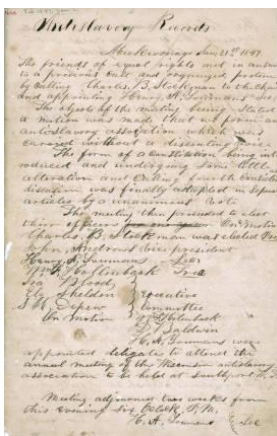 Antislavery Records
Mukwonago Jan 21st 1847
The friends of equal rights met in answer
to a previous call and organized
by calling Charles, B, Stockman to the Chair
and appointing Henry A, Youmans Sec
The objects of the meeting being stated
a motion was made that we form an
antislavery association which was
carried without a dissenting voice
The form of a Constitution being int
roduced and undergoing some little
alteration and calling forth
discussion was finally adopted in separate
articles by a unanimous vote
The meeting then proceeded to elect
their officers On motion
Charles, B, Stockman was elected Pres
John, Andrews Vice president
Henry, A, Youmans Sec
Wm, Hollenback Trea
Ira Blood
Ely Sheldon Executive
committee
On motion Hollenback
Baldwin
H, A, Youmans were
appointed delegates to attend the
annual meeting of the Wisconsin antislavery
association to be held at Southport
Meeting adjourned two weeks from
this evening six Oclock P, M,
H, A, Youmans Sec